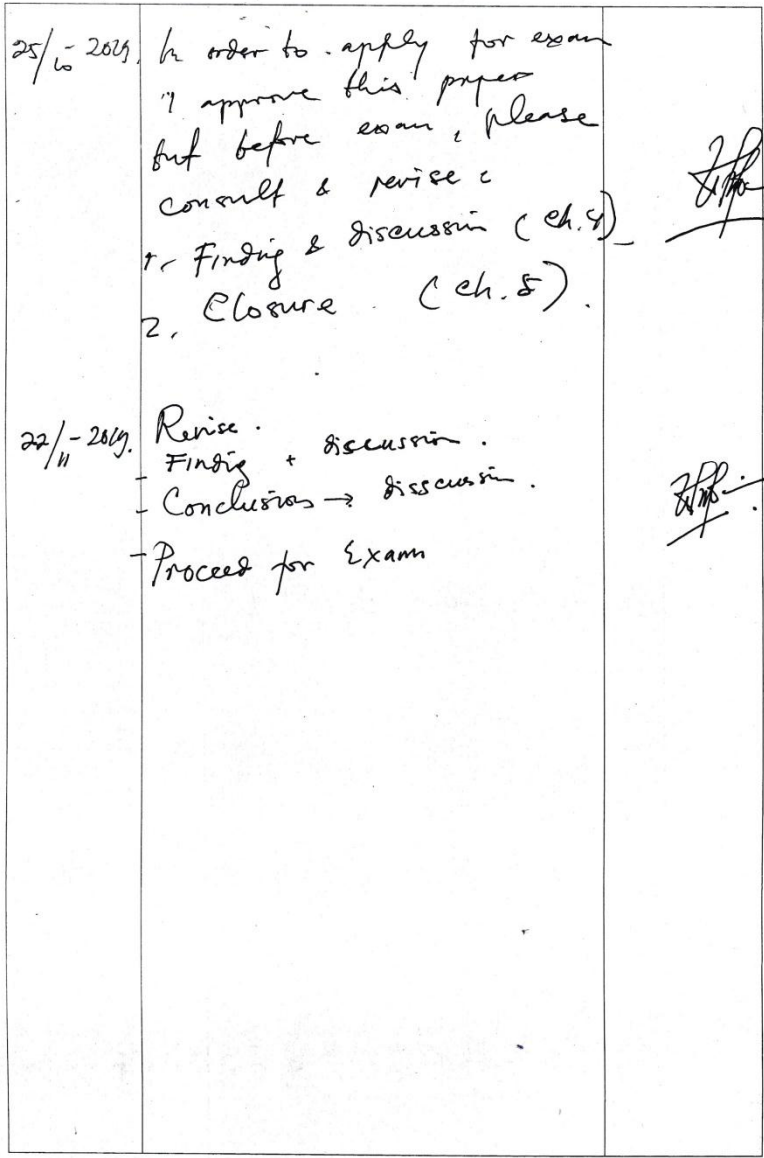 25/10-2019. In order to apply for exam
I approve this paper
but before exam, please
consult & revise :
1. Finding & discussion (ch. 4)
2. Closure (ch. 5).
22/11-2019. Revise.
- Finding + discussion.
- Conclusions → disscussion.
- Proceed for Exam